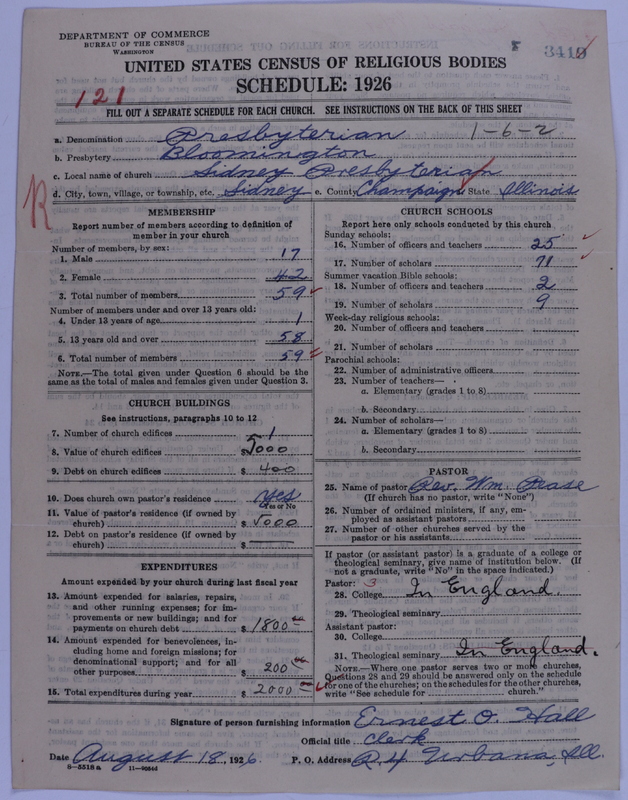 DEPARTMENT OF COMMERCE
BUREAU OF THE CENSUS
WASHINGTON
3419
UNITED STATES CENSUS OF RELIGIOUS BODIES
SCHEDULE: 1926
121
FILL OUT A SEPARATE SCHEDULE FOR EACH CHURCH. SEE INSTRUCTIONS ON THE BACK OF THIS SHEET
a. Denomination Presbyterian 1-6-2
b. Presbytery Bloomington
c. Local name of church Sidney Presbyterian
d. City, town, village, or township, etc. Sidney e. County Champaign State Illinois
R
MEMBERSHIP
Report number of members according to definition of
member in your church
Number of members, by sex:
1. Male 17
2. Female 42
3. Total number of members 59
Number of members under and over 13 years old:
4. Under 13 years of age 1
5. 13 years old and over 58
6. Total number of members 59
NOTE.—The total given under Question 6 should be
same as the total of males and females given under Question 3.
CHURCH BUILDINGS
See instructions, paragraphs 10 to 12
7. Number of church edifices 1
8. Value of church edifices $5000
9. Debt on church edifices $400
10. Does church own pastor's residence Yes
Yes or No
11. Value of pastor's residence (if owned by
church) $5000
12. Debt on pastor's residence (if owned by
church) $
EXPENDITURES
Amount expended by your church during last fiscal year
13. Amount expended for salaries, repairs,
and other running expenses; for im-
provements or new buildings; and for
payments on church debt $1800
14. Amount expended for benevolences, in-
cluding home and foreign missions; for
denominational support; and for all
other purposes $200
15. Total expenditures during year $2000
CHURCH SCHOOLS
Report here only schools conducted by this church
Sunday schools:
16. Number of officers and teachers 25
17. Number of scholars 71
Summer vacation Bible schools:
18. Number of officers and teachers 2
19. Number of scholars 9
Week-day religious schools:
20. Number of officers and teachers
21. Number of scholars
Parochial schools:
22. Number of administrative officers
23. Number of teachers—
a. Elementary (grades 1 to 8)
b. Secondary
24. Number of scholars—
a. Elementary (grades 1 to 8)
b. Secondary
PASTOR
25. Name of pastor Rev. Wm. Prase
(If church has no pastor, write "None")
26. Number of ordained ministers, if any, em-
ployed as assistant pastors
27. Number of other churches served by the
pastor or his assistants
If pastor (or assistant pastor) is a graduate of a college or
theological seminary, give name of institution below. (If
not a graduate, write "No" in the space indicated.)
Pastor: 3
28. College In England.
29. Theological seminary
Assistant pastor:
30. College
31. Theological seminary In England.
NOTE.—Where one pastor serves two or more churches,
Questions 28 and 29 should be answered only on the schedule
for one of the churches; on the schedules for the other churches,
write "See schedule for church."
Signature of person furnishing information Ernest O. Hall
Official title Clerk
Date August 18, 1926. P. O. Address R4 Urbana, Ill.
8—5518a